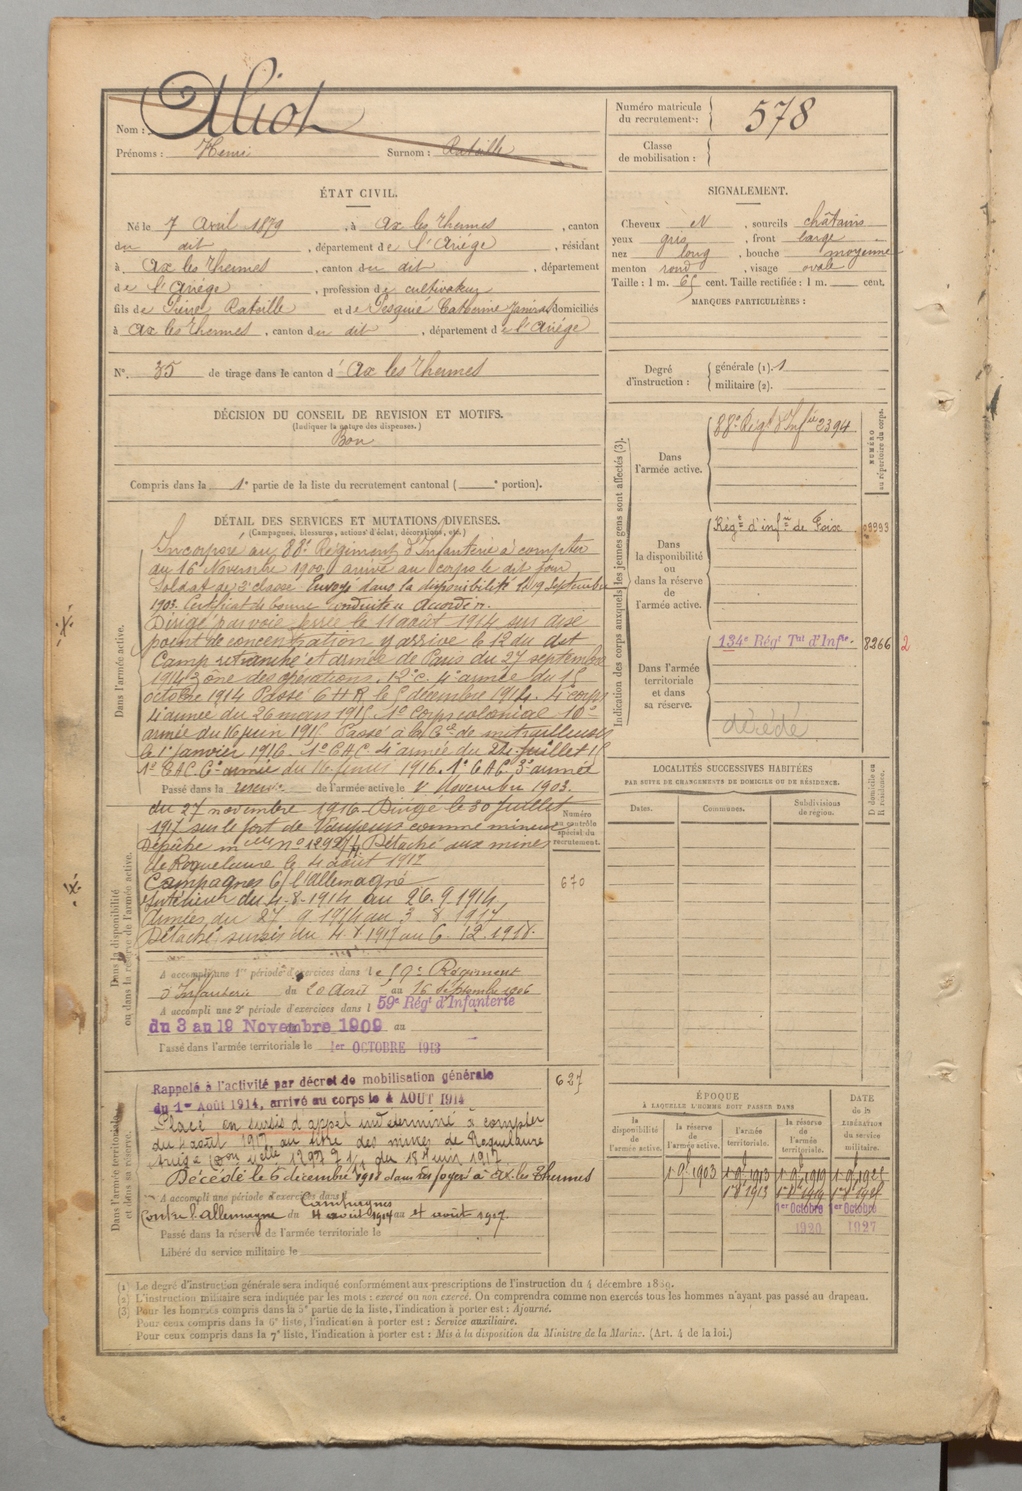 Nom : Aliot
Prénoms : Henri Surnom : Rataille
Numéro matricule du recrutement : 578
Classe de mobilisation :
ÉTAT CIVIL.
Né le 7 Avril 1879, à Ax les Thermes, canton
du dit, département de l'Ariége, résidant
à Ax les Thermes, canton du dit, département
de l'Ariége, profession de cultivateur
fils de Pierre Rataille et de Pesquié Catherine domiciliés
à Ax les Thermes, canton du dit, département de l'Ariége
N°. 35 de tirage dans le canton d' Ax les Thermes
SIGNALEMENT.
Cheveux N, sourcils châtains
yeux gris, front large
nez long, bouche moyenne
menton rond, visage ovale
Taille : 1 m. 65 cent. Taille rectifiée : 1 m. cent.
MARQUES PARTICULIÈRES :
Degré d'instruction : générale (1). 1
militaire (2).
DÉCISION DU CONSEIL DE REVISION ET MOTIFS.
(Indiquer la nature des dispenses.)
Bon
Compris dans la 1e partie de la liste du recrutement cantonal ( e portion).
DÉTAIL DES SERVICES ET MUTATIONS DIVERSES.
(Campagnes, blessures, actions d'éclat, décorations, etc.)
Dans l'armée active.
Incorporé au 88e Régiment d'Infanterie à compter
du 16 Novembre 1900, arrivé au corps le dit jour
Soldat de 2e classe Envoyé dans la disponibilité le 19 Septembre
1903. Certificat de bonne conduite accordé.
Dirigé par voie ferrée le 11 août 1914 sur
point de concentration y arrive le 12 du dit
Camp retranché et armée de Paris du 27 septembre
1914 Zône des opérations. 12e c. 4e armée du 15
octobre 1914 Passé 6 H R le 5 décembre 1914. 4e corps
4e armée du 26 mars 1915. 1e Corps colonial 10e
armée du 16 juin 1915 Passé à la Cie de mitrailleuses
le 1er janvier 1916. 1e C.A.C. 4e armée du 22 juillet 15
1e C.A.C. 6e armée du 16 février 1916. 1e C.A.C. 3e armée
Passé dans la réserve de l'armée active le 1er Novembre 1903.
Dans la disponibilité ou dans la réserve de l'armée active.
du 27 novembre 1916 Dirigé le 30 juillet
1917 sur le fort de Vaujours comme mineur
Dépêche melle n° Détaché aux mines
de Roquelaure le 4 août 1917
Campagnes C/ l'Allemagne
Intérieur du 4-8-1914 au 26.9.1914
Armées du 27 9 1914 au 3 8 1917
Détaché, sursis du 4 8 1917 au 6.12.1918.
Numéro au contrôle spécial du recrutement.
670
A accompli une 1re période d'exercices dans le 59e Régiment
d'Infanterie du 20 Août au 16 Septembre 1906
A accompli une 2e période d'exercices dans l 59e Régt d'Infanterie
du 3 au 19 Novembre 1909 au
Passé dans l'armée territoriale le 1er OCTOBRE 1913
Dans l'armée territoriale et dans sa réserve.
627
Rappelé à l'activité par décret de mobilisation générale
du 1er Août 1914, arrivé au corps le 4 AOUT 1914
Placé en sursis d'appel indéterminé à compter
du 4 août 1917 au titre des mines de Roquelaure
Ariége du 15 juin 1917.
Décédé le 6 décembre 1918 dans ses foyers à Ax les Thermes
A accompli une période d'exercices dans Campagnes
Contre l'Allemagne du 4 août 1914 au 4 août 1917.
Passé dans la réserve de l'armée territoriale le
Libéré du service militaire le
Indication des corps auxquels les jeunes gens sont affectés (3).
NUMÉRO au répertoire du corps.
Dans l'armée active. 88e Régt d'Infie 2394
Dans la disponibilité ou dans la réserve de l'armée active. Régt d'infie de Foix
Dans l'armée territoriale et dans sa réserve. 134e Régt Tal d'Infie. 8266 2
décédé
LOCALITÉS SUCCESSIVES HABITÉES
PAR SUITE DE CHANGEMENTS DE DOMICILE OU DE RÉSIDENCE.
Dates. Communes. Subdivisions de région. D domicile ou R résidence.
ÉPOQUE
À LAQUELLE L'HOMME DOIT PASSER DANS
DATE de la LIBÉRATION du service militaire.
la disponibilité de l'armée active. la réserve de l'armée active. l'armée territoriale. la réserve de l'armée territoriale.
1 9bre 1903 1 9bre 1913 1 9bre 1919 1 9bre 1925
1er Octobre 1920 1er Octobre 1927
(1) Le degré d'instruction générale sera indiqué conformément aux prescriptions de l'instruction du 4 décembre 1889.
(2) L'instruction militaire sera indiquée par les mots : exercé ou non exercé. On comprendra comme non exercés tous les hommes n'ayant pas passé au drapeau.
(3) Pour les hommes compris dans la 5e partie de la liste, l'indication à porter est : Ajourné.
Pour ceux compris dans la 6e liste, l'indication à porter est : Service auxiliaire.
Pour ceux compris dans la 7e liste, l'indication à porter est : Mis à la disposition du Ministre de la Marine. (Art. 4 de la loi.)